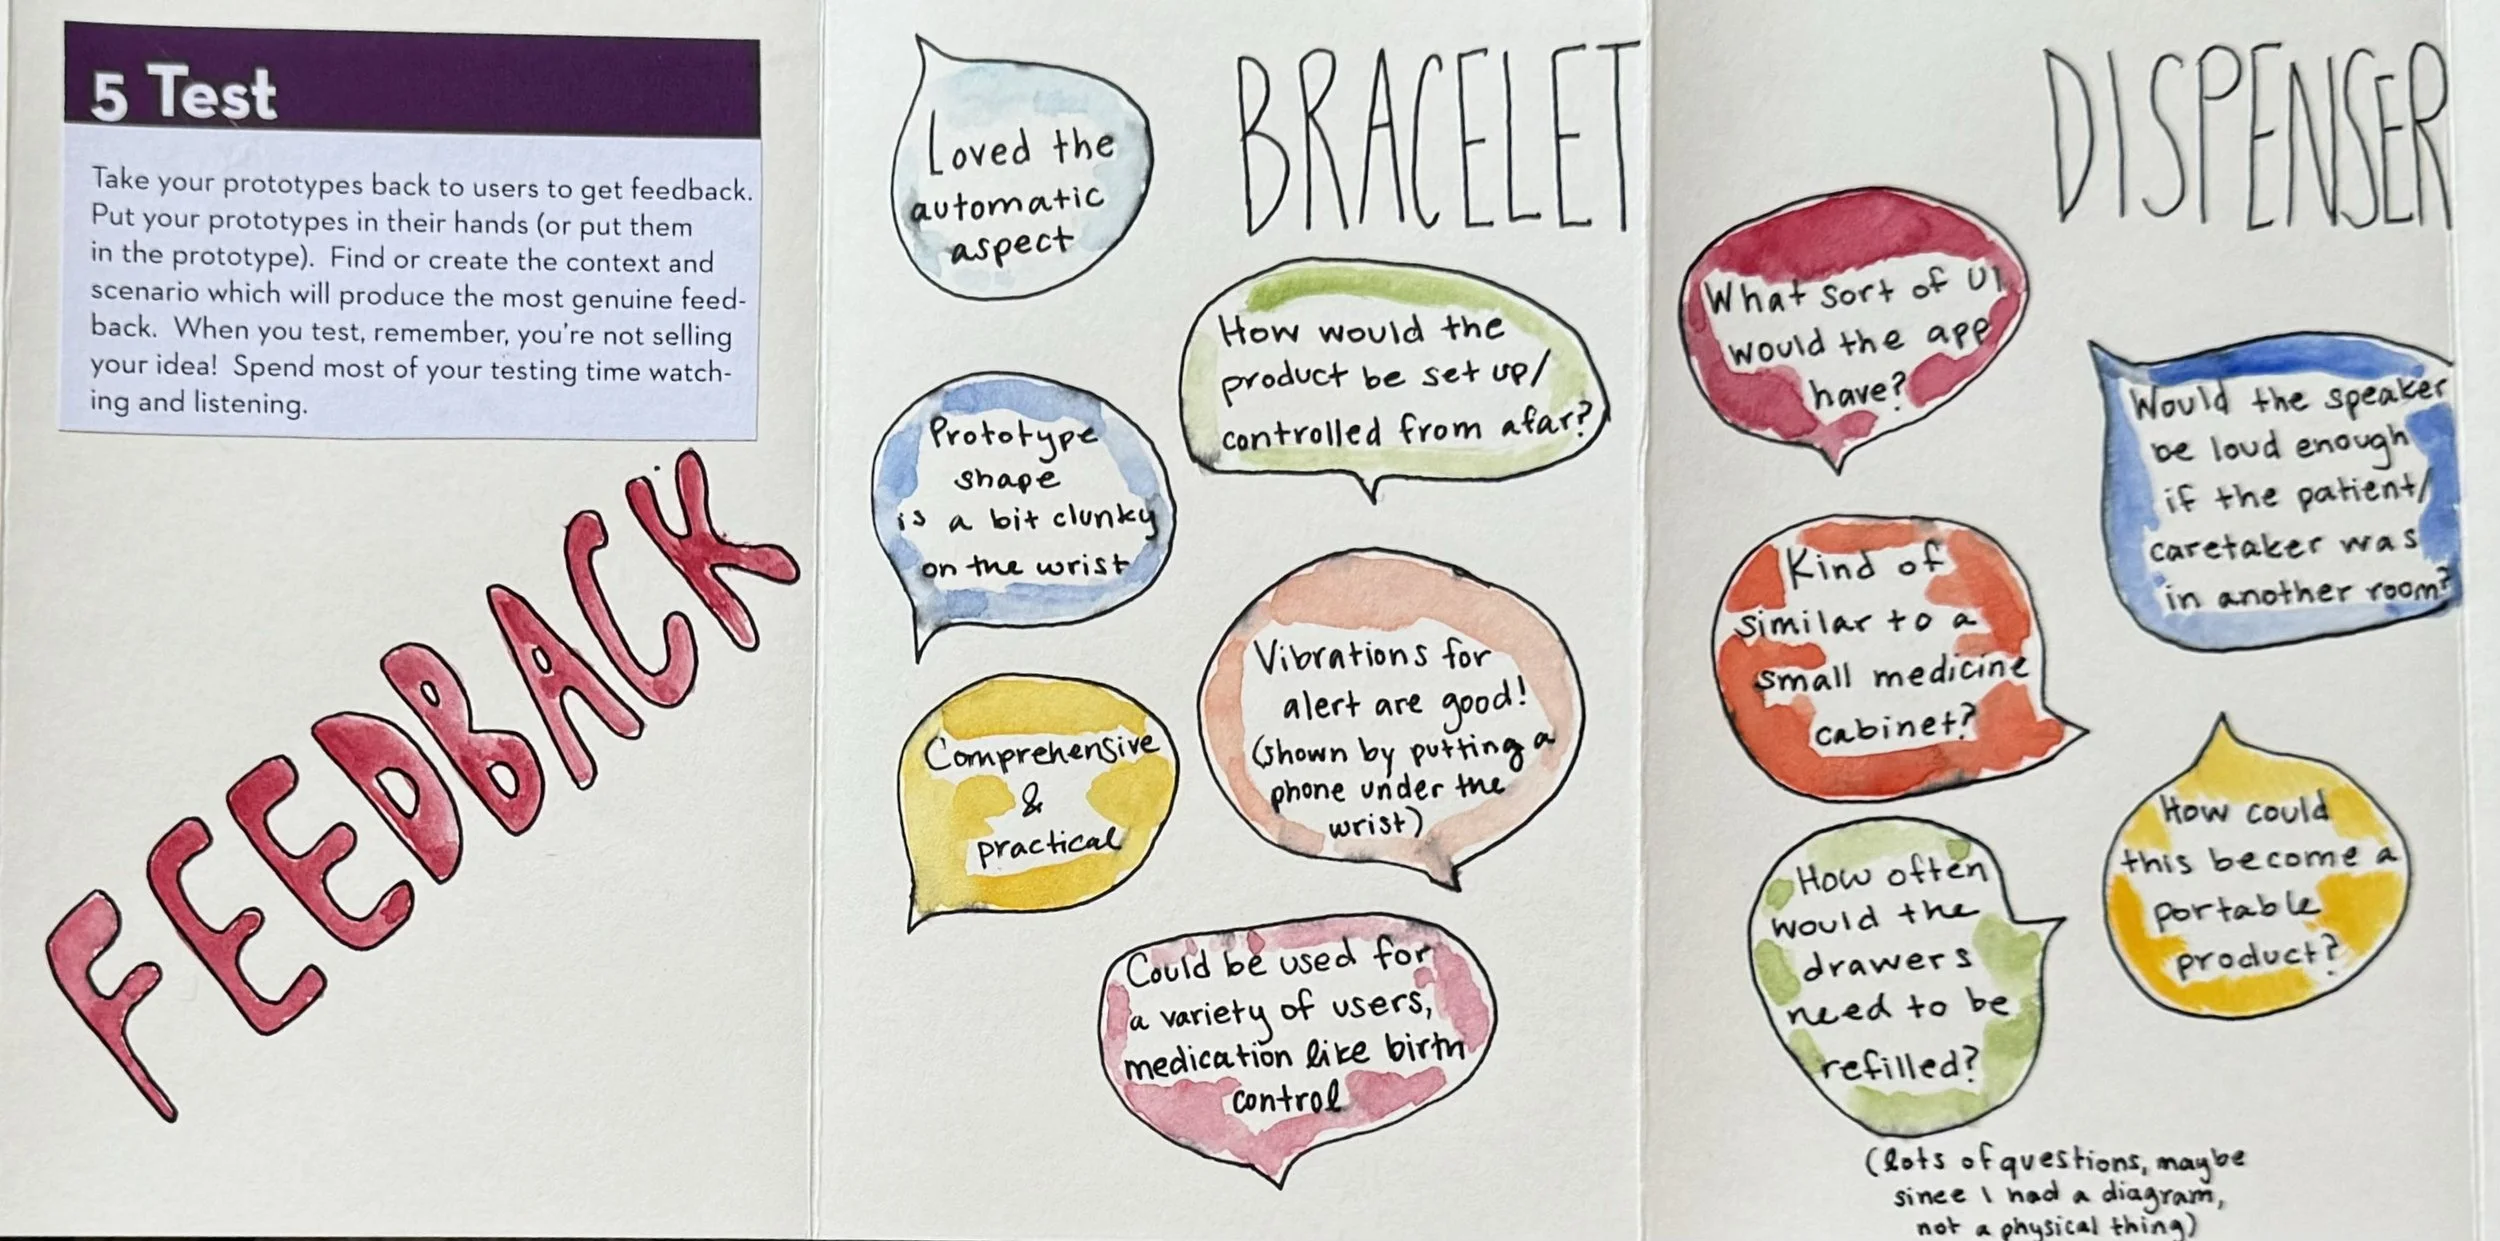 5 Test
Take your prototypes back to users to get feedback.
Put your prototypes in their hands (or put them
in the prototype). Find or create the context and
scenario which will produce the most genuine feed-
back. When you test, remember, you're not selling
your idea! Spend most of your testing time watch-
ing and listening.
FEEDBACK
BRACELET
Loved the
automatic
aspect
How would the
product be set up/
controlled from afar?
Prototype
shape
is a bit clunky
on the wrist
Vibrations for
alert are good!
(shown by putting a
phone under the
wrist)
Comprehensive
&
practical
Could be used for
a variety of users,
medication like birth
control
DISPENSER
What sort of UI
would the app
have?
Would the speaker
be loud enough
if the patient/
caretaker was
in another room?
Kind of
similar to a
small medicine
cabinet?
How could
this become a
portable
product?
How often
would the
drawers
need to be
refilled?
(lots of questions, maybe
since I had a diagram,
not a physical thing)